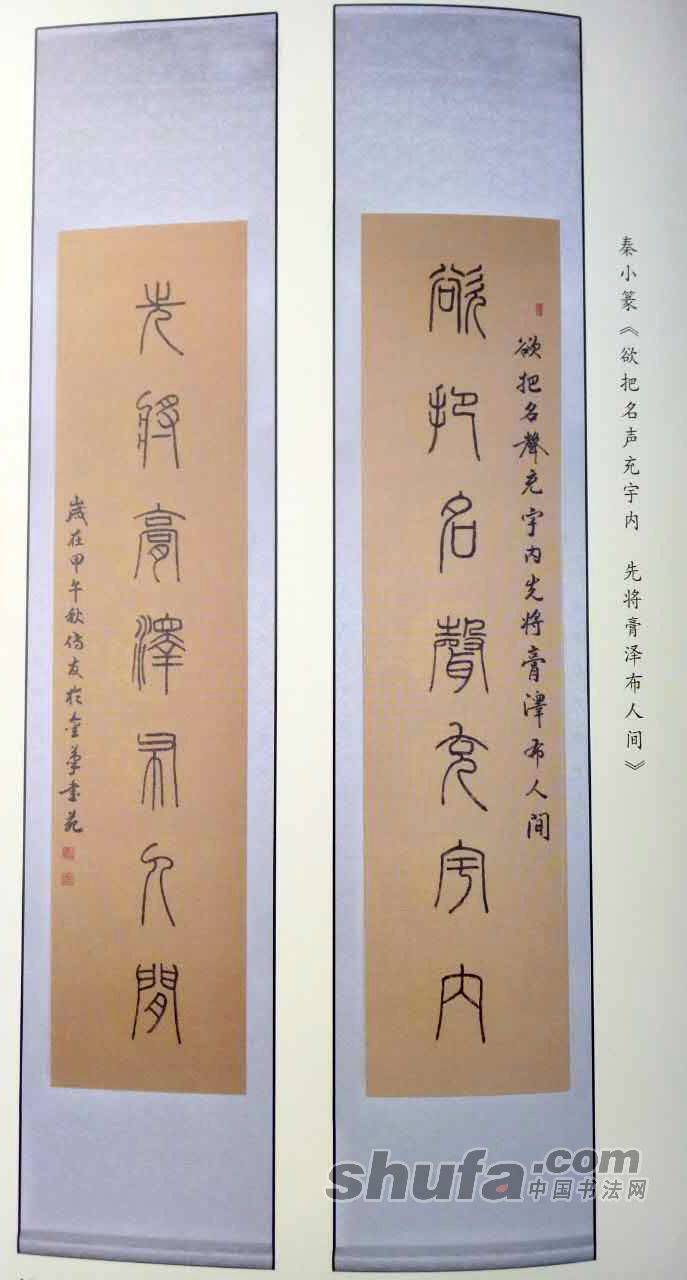 秦小篆《欲把名声充宇内 先将膏泽布人间》
欲把名聲充宇内先将膏澤布人间
欲把名聲充宇内
先將膏澤布人閒
歲在甲午秋傳友於金華書苑
shufa.com
中国书法网